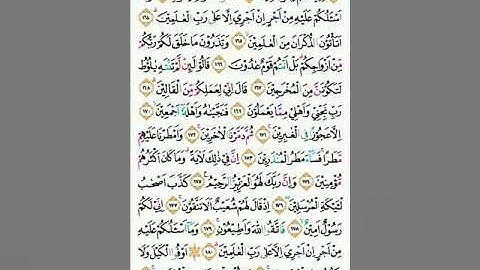 اَسْـَٔلُكُمْ عَلَيْهِ مِنْ اَجْرٍ اِنْ اَجْرِيَ اِلَّا عَلٰى رَبِّ الْعٰلَمِيْنَ ۝١٦٤
اَتَأْتُوْنَ الذُّكْرَانَ مِنَ الْعٰلَمِيْنَ ۝١٦٥ وَتَذَرُوْنَ مَا خَلَقَ لَكُمْ رَبُّكُمْ
مِّنْ اَزْوَاجِكُمْ بَلْ اَنْتُمْ قَوْمٌ عٰدُوْنَ ۝١٦٦ قَالُوْا لَىِٕنْ لَّمْ تَنْتَهِ يٰلُوْطُ
لَتَكُوْنَنَّ مِنَ الْمُخْرَجِيْنَ ۝١٦٧ قَالَ اِنِّيْ لِعَمَلِكُمْ مِّنَ الْقَالِيْنَ ۝١٦٨
رَبِّ نَجِّنِيْ وَاَهْلِيْ مِمَّا يَعْمَلُوْنَ ۝١٦٩ فَنَجَّيْنٰهُ وَاَهْلَهٗٓ اَجْمَعِيْنَ ۝١٧٠
اِلَّا عَجُوْزًا فِى الْغٰبِرِيْنَ ۝١٧١ ثُمَّ دَمَّرْنَا الْاٰخَرِيْنَ ۝١٧٢ وَاَمْطَرْنَا عَلَيْهِمْ
مَّطَرًا فَسَاۤءَ مَطَرُ الْمُنْذَرِيْنَ ۝١٧٣ اِنَّ فِيْ ذٰلِكَ لَاٰيَةً وَمَا كَانَ اَكْثَرُهُمْ
مُّؤْمِنِيْنَ ۝١٧٤ وَاِنَّ رَبَّكَ لَهُوَ الْعَزِيْزُ الرَّحِيْمُ ۝١٧٥ كَذَّبَ اَصْحٰبُ
لْـَٔيْكَةِ الْمُرْسَلِيْنَ ۝١٧٦ اِذْ قَالَ لَهُمْ شُعَيْبٌ اَلَا تَتَّقُوْنَ ۝١٧٧ اِنِّيْ لَكُمْ
رَسُوْلٌ اَمِيْنٌ ۝١٧٨ فَاتَّقُوا اللّٰهَ وَاَطِيْعُوْنِ ۝١٧٩ وَمَآ اَسْـَٔلُكُمْ عَلَيْهِ
مِنْ اَجْرٍ اِنْ اَجْرِيَ اِلَّا عَلٰى رَبِّ الْعٰلَمِيْنَ ۝١٨٠ ۞ اَوْفُوا الْكَيْلَ وَلَا